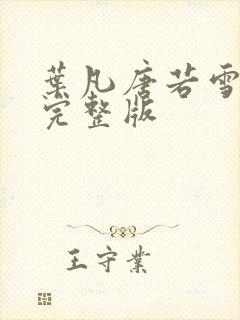 葉凡唐若雪
完整版
王守業